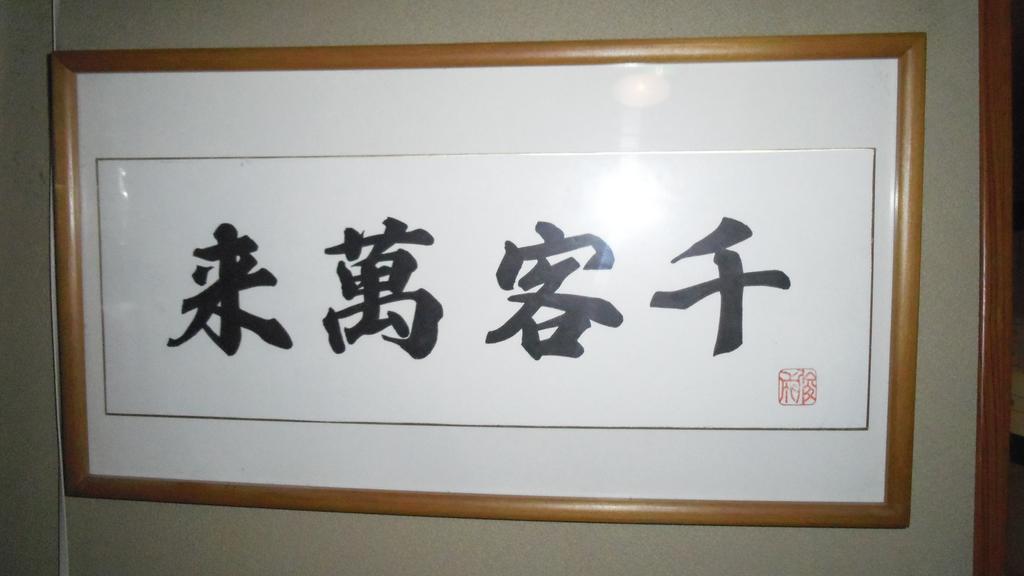 千客萬来